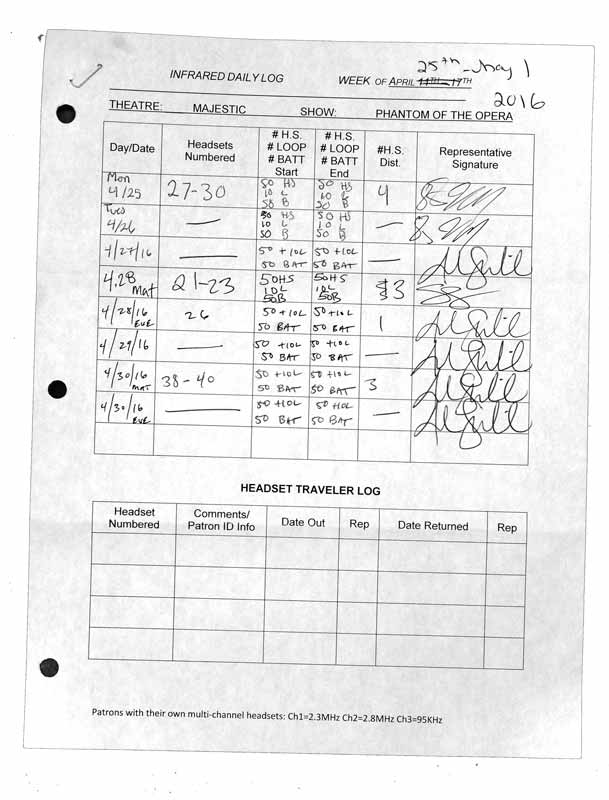 25th - May 1
INFRARED DAILY LOG WEEK OF APRIL 11TH – 17TH
2016
THEATRE: MAJESTIC SHOW: PHANTOM OF THE OPERA
Day/Date
Headsets
Numbered
# H.S.
# LOOP
# BATT
Start
# H.S.
# LOOP
# BATT
End
#H.S.
Dist.
Representative
Signature
Mon
4/25
27-30
50 HS
10 L
50 B
50 HS
10 L
50 B
4
Tues
4/26
—
50 HS
10 L
50 B
50 HS
10 L
50 B
—
4/27/16
—
50 + 10L
50 BAT
50 +10L
50 BAT
—
4.28
Mat
21-23
50HS
10L
50B
50HS
10L
50B
3
4/28/16
EVE
26
50 +10L
50 BAT
50 +10L
50 BAT
1
4/29/16
—
50 +10L
50 BAT
50 +10L
50 BAT
—
4/30/16
MAT
38-40
50 +10L
50 BAT
50 +10L
50 BAT
3
4/30/16
EVE
—
50 +10L
50 BAT
50 +10L
50 BAT
—
HEADSET TRAVELER LOG
Headset
Numbered
Comments/
Patron ID Info
Date Out
Rep
Date Returned
Rep
Patrons with their own multi-channel headsets: Ch1=2.3MHz Ch2=2.8MHz Ch3=95KHz